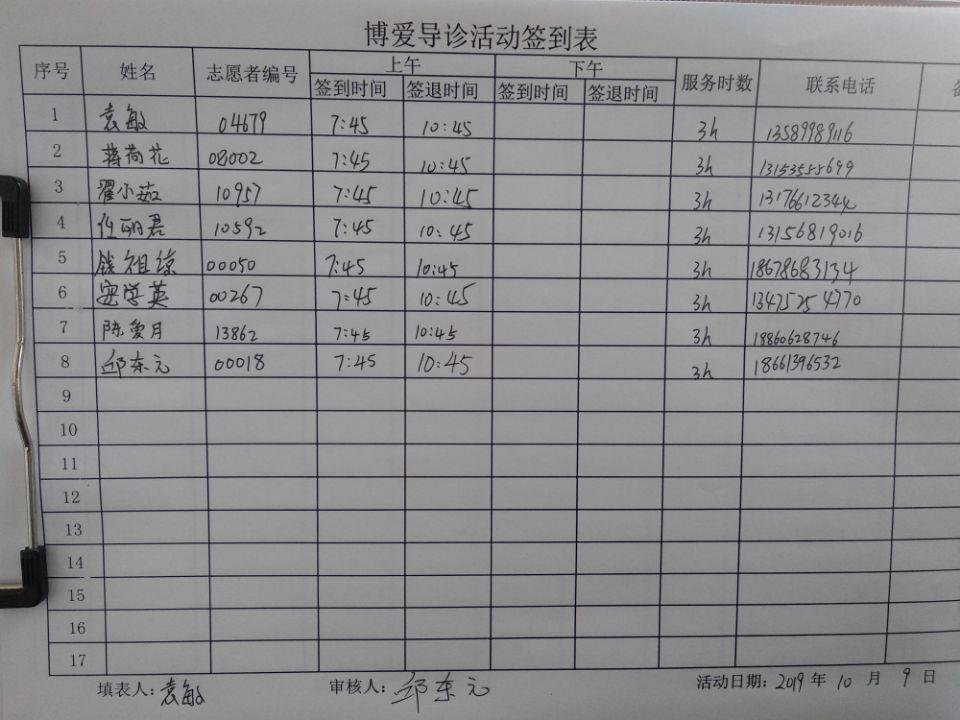 博爱导诊活动签到表
序号 姓名 志愿者编号 上午 下午 服务时数 联系电话
签到时间 签退时间 签到时间 签退时间
1 袁敏 04679 7:45 10:45 3h 13589989116
2 蒋荷花 08002 7:45 10:45 3h 13153555699
3 翟小茹 10957 7:45 10:45 3h 13176612344
4 任丽君 10592 7:45 10:45 3h 13156819016
5 钱祖琼 00050 7:45 10:45 3h 18678683134
6 安学英 00267 7:45 10:45 3h 13475254770
7 陈爱月 13862 7:45 10:45 3h 18860628746
8 邱东元 00018 7:45 10:45 3h 18661396532
9
10
11
12
13
14
15
16
17
填表人:袁敏 审核人:邱东元 活动日期:2019年10月9日